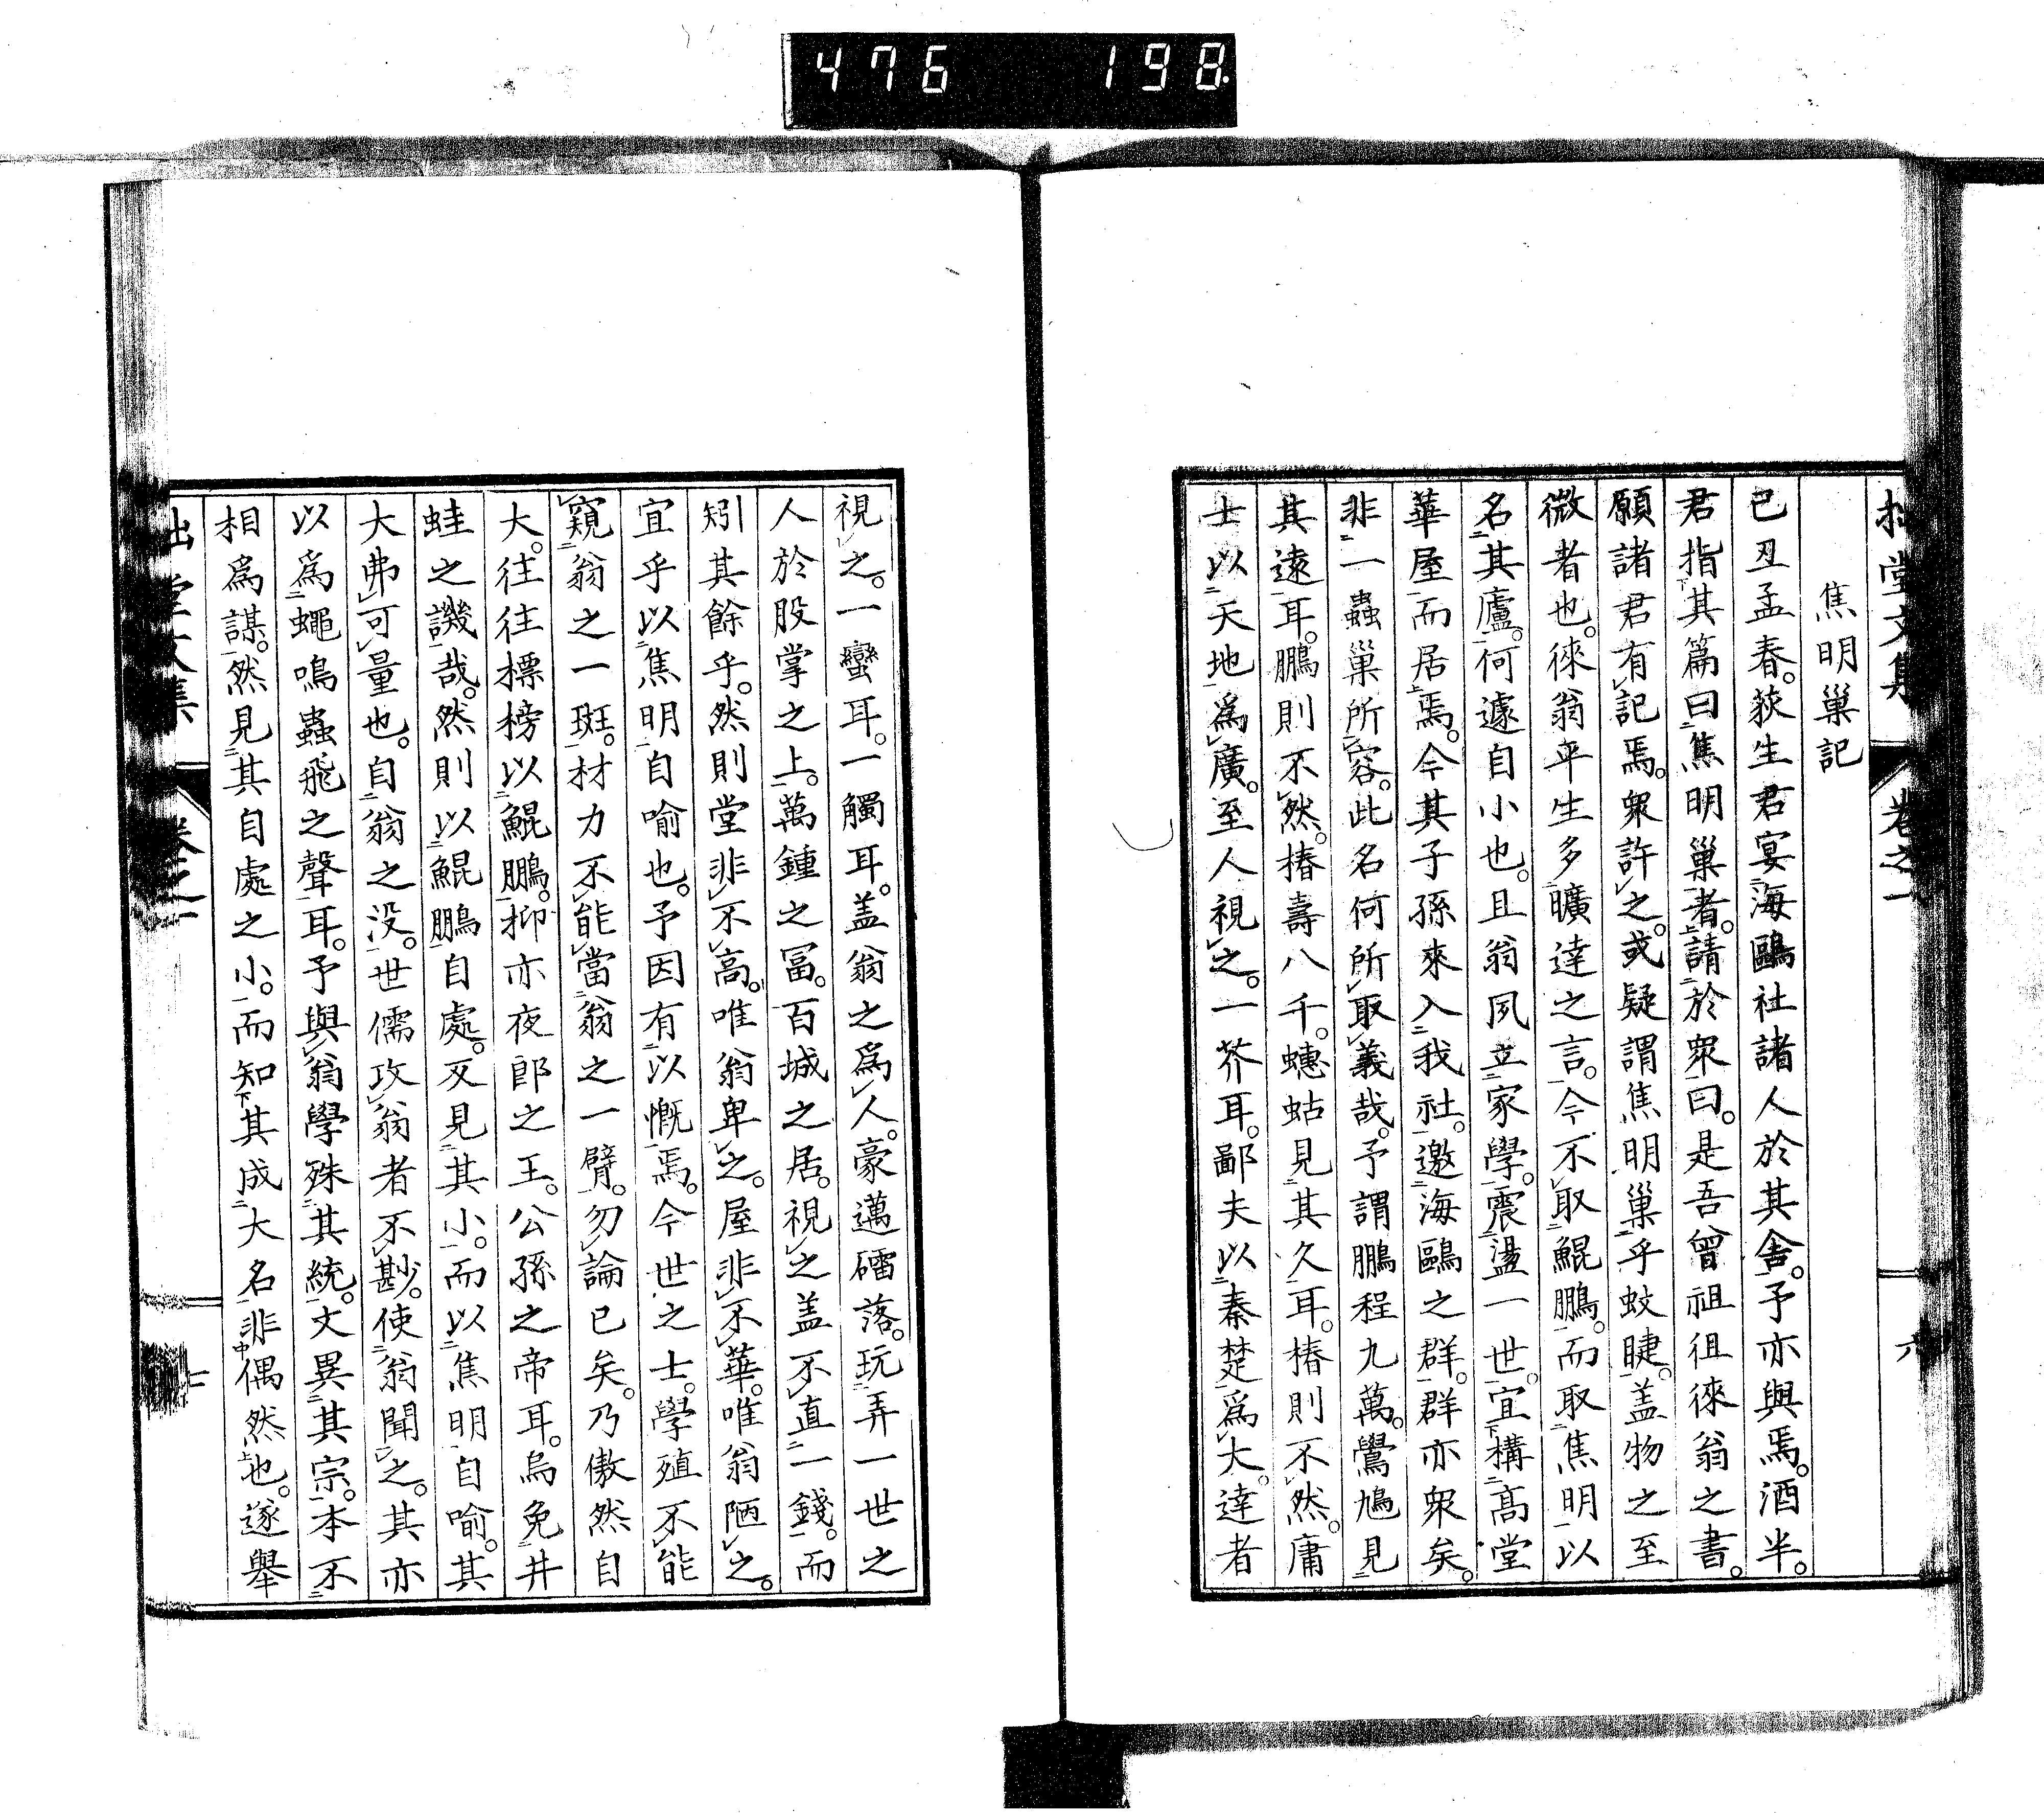 476 198
拙堂文集 卷之一 六
焦明巢記
己丑孟春。荻生君宴海鷗社諸人於其舍。予亦與焉。酒半。
君指其篇曰焦明巢者。請於衆曰。是吾曾祖徂徠翁之書。
願諸君有記焉。衆許之。或疑謂焦明巢乎蚊睫。盖物之至
微者也。徠翁平生多曠達之言。今不取鯤鵬。而取焦明以
名其廬。何遽自小也。且翁夙立家學。震盪一世。宜構高堂
華屋而居焉。今其子孫來入我社。邀海鷗之群。群亦衆矣。
非一蟲巢所容。此名何所取義哉。予謂鵬程九萬。鷽鳩見
其遠耳。鵬則不然。椿壽八千。蟪蛄見其久耳。椿則不然。庸
士以天地爲廣。至人視之。一芥耳。鄙夫以秦楚爲大。達者
視之。一蠻耳。一觸耳。盖翁之爲人。豪邁磊落。玩弄一世之
人於股掌之上。萬鍾之富。百城之居。視之盖不直一錢。而
矧其餘乎。然則堂非不高。唯翁卑之。屋非不華。唯翁陋之。
宜乎以焦明自喻也。予因有以慨焉。今世之士。學殖不能
窺翁之一斑。材力不能當翁之一臂。勿論已矣。乃傲然自
大。往往標榜以鯤鵬。抑亦夜郎之王。公孫之帝耳。烏免井
蛙之譏哉。然則以鯤鵬自處。又見其小。而以焦明自喻。其
大弗可量也。自翁之没。世儒攻翁者不尠。使翁聞之。其亦
以爲蠅鳴蟲飛之聲耳。予與翁學殊其統。文異其宗。本不
相爲謀。然見其自處之小。而知其成大名非偶然也。遂舉
拙堂文集 卷之一